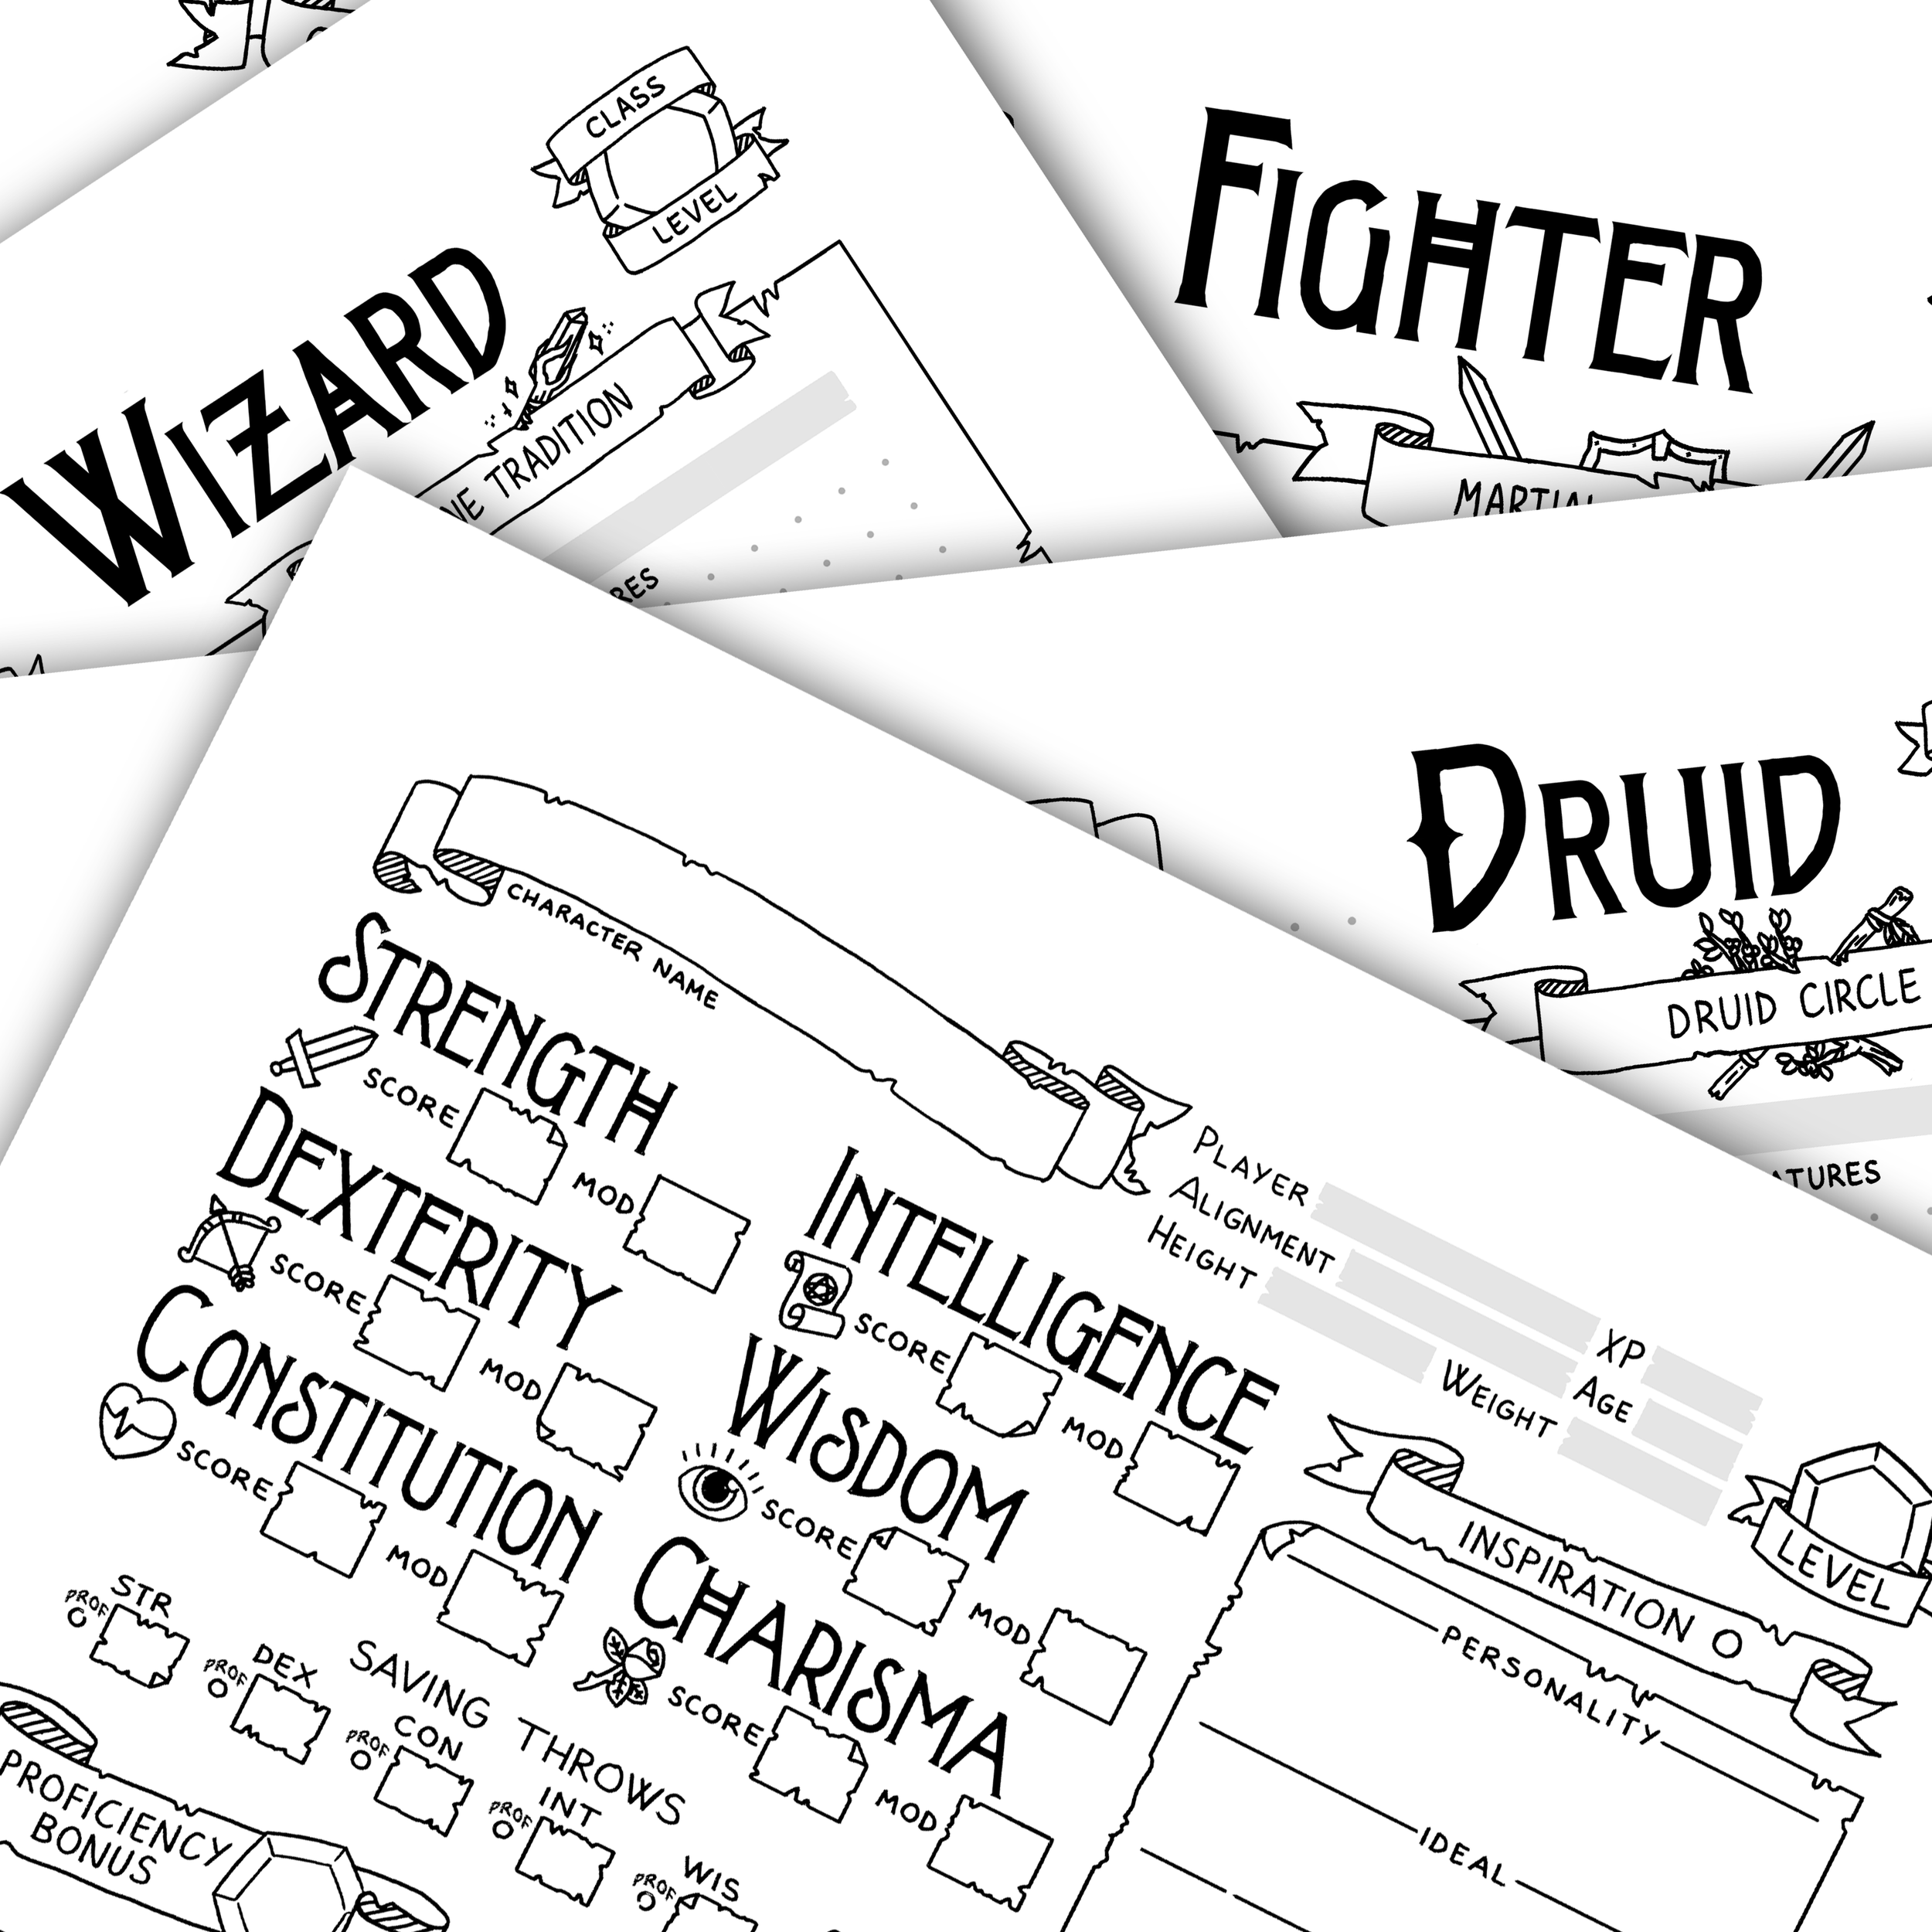 CLASS
LEVEL
WIZARD
TRADITION
FIGHTER
DRUID
DRUID CIRCLE
CHARACTER NAME
STRENGTH
SCORE
MOD
DEXTERITY
SCORE
MOD
CONSTITUTION
SCORE
MOD
INTELLIGENCE
SCORE
MOD
WISDOM
SCORE
MOD
CHARISMA
SCORE
MOD
PLAYER
XP
ALIGNMENT
AGE
HEIGHT
WEIGHT
INSPIRATION
LEVEL
PERSONALITY
IDEAL
SAVING THROWS
PROF STR
PROF DEX
PROF CON
PROF INT
PROF WIS
PROFICIENCY
BONUS